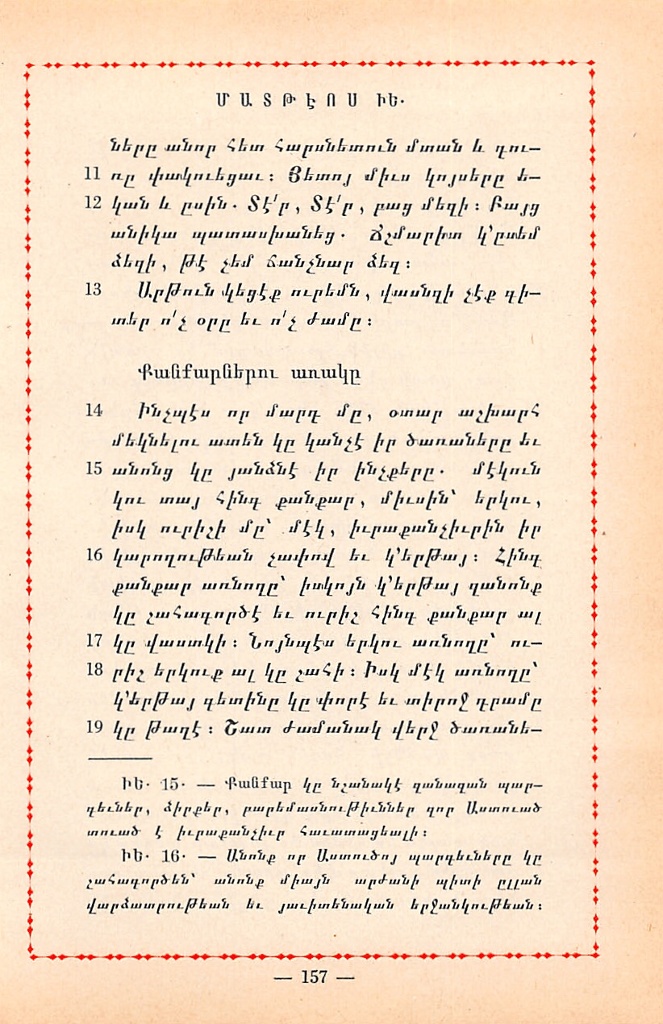 ՄԱՏԹԷՈՍ ԻԵ․
ները անոր հետ Հարսնետուն մտան և դու—
11 ռը փակուեցաւ։ Յետոյ միւս կոյսերը ե—
12 կան և ըսին․ Տէ՛ր, Տէ՛ր, բաց մեզի։ Բայց
անիկա պատասխանեց․ Ճշմարիտ կ՚ըսեմ
ձեզի, թէ չեմ ճանչնար ձեզ։
13 Արթուն կեցէք ուրեմն, վասնզի չէք գի—
տեր ո՛չ օրը եւ ո՛չ ժամը։
Քանքարներու առակը
14 Ինչպէս որ մարդ մը, օտար աշխարհ
մեկնելու ատեն կը կանչէ իր ծառաները եւ
15 անոնց կը յանձնէ իր ինչքերը․ մէկուն
կու տայ հինգ քանքար, միւսին՝ երկու,
իսկ ուրիշի մը՝ մէկ, իւրաքանչիւրին իր
16 կարողութեան չափով եւ կ՚երթայ։ Հինգ
քանքար առնողը՝ իսկոյն կ՚երթայ զանոնք
կը շահագործէ եւ ուրիշ հինգ քանքար ալ
17 կը վաստկի։ Նոյնպէս երկու առնողը՝ ու—
18 րիշ երկուք ալ կը շահի։ Իսկ մէկ առնողը՝
կ՚երթայ գետինը կը փորէ եւ տիրոջ դրամը
19 կը թաղէ։ Շատ ժամանակ վերջ ծառանե—
ԻԵ․ 15․ — Քանքար կը նշանակէ զանազան պար—
գեւներ, ձիրքեր, բարեմասնութիւններ զոր Աստուած
տուած է իւրաքանչիւր հաւատացեալի։
ԻԵ․ 16․ — Անոնք որ Աստուծոյ պարգեւները կը
շահագործեն՝ անոնք միայն արժանի պիտի ըլլան
վարձատրութեան եւ յաւիտենական երջանկութեան։
— 157 —